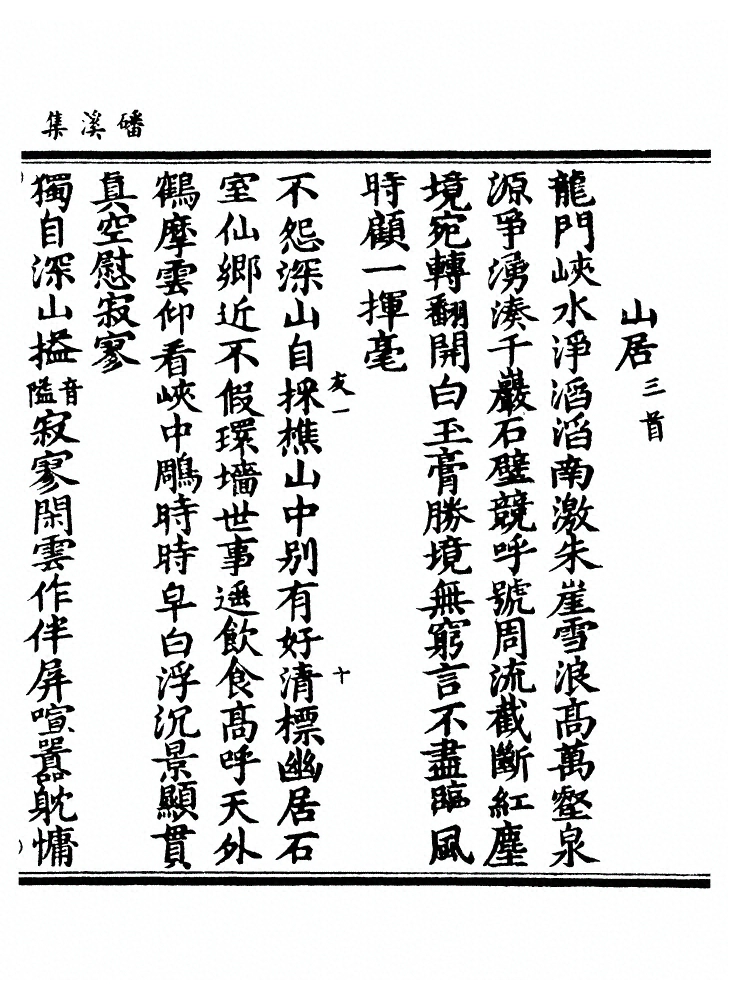 磻溪集
山居三首
龍門峽水淨滔滔南激朱崖雪浪高萬壑泉
源爭湧湊千巖石壁競呼號周流截斷紅塵
境宛轉翻開白玉膏勝境無窮言不盡臨風
時顧一揮毫
友一
十
不怨深山自採樵山中別有好清標幽居石
室仙鄉近不假環墻世事遥飲食高呼天外
鶴摩雲仰看峽中鵰時時皁白浮沉景顯貫
真空慰寂寥
獨自深山搤音隘寂寥閑雲作伴屏喧囂躭慵